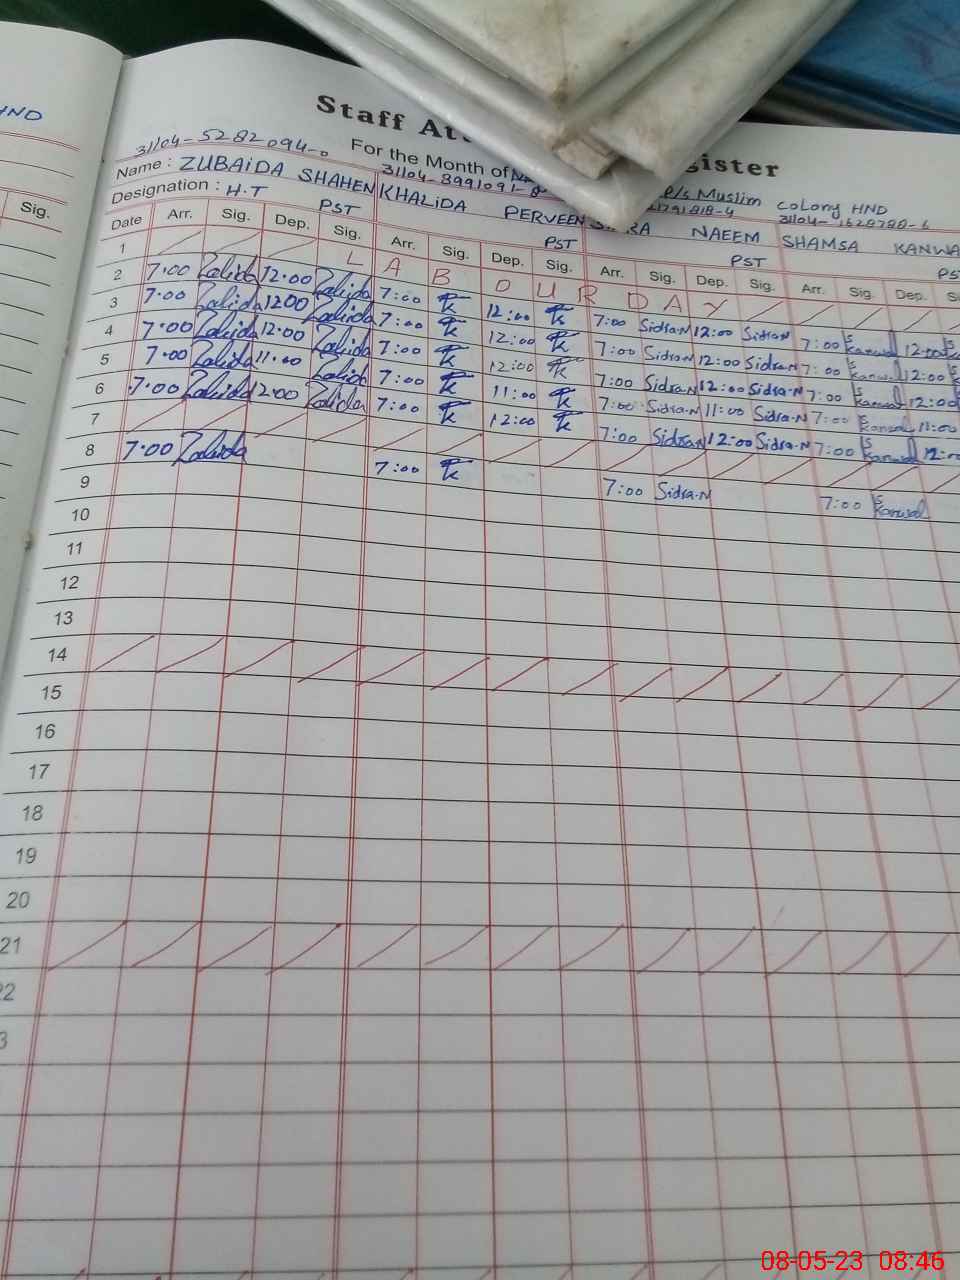 HND
Sig.
Staff At gister
For the Month of
P/s Muslim Colony HND
31104-5282094-0 31104-8991091-8 1791818-4 31104-1628788-6
Name : ZUBAIDA SHAHEN KHALIDA PERVEEN RA NAEEM SHAMSA KANWA
Designation : H.T PST PST PST PS
Date Arr. Sig. Dep. Sig. Arr. Sig. Dep. Sig. Arr. Sig. Dep. Sig. Arr. Sig. Dep. S
1 L A B O U R D A Y
2 7:00 Zabida 12:00 Zabida 7:00 12:00 7:00 Sidra.N 12:00 Sidra.N 7:00 S Kanwal 12:00
3 7:00 Zabida 1200 Zabida 7:00 12:00 7:00 Sidra.N 12:00 Sidra.N 7:00 S Kanwal 12:00
4 7:00 Zabida 12:00 Zabida 7:00 12:00 7:00 Sidra.N 12:00 Sidra.N 7:00 S Kanwal 12:00
5 7:00 Zabida 11:00 Zabida 7:00 11:00 7:00 Sidra.N 11:00 Sidra.N 7:00 S Kanwal 11:00
6 7:00 Zabida 12:00 Zabida 7:00 12:00 7:00 Sidra.N 12:00 Sidra.N 7:00 S Kanwal 12:00
7
8 7:00 Zabida 7:00 7:00 Sidra.N 7:00 S Kanwal
9
10
11
12
13
14
15
16
17
18
19
20
21
22
3
08-05-23 08:46